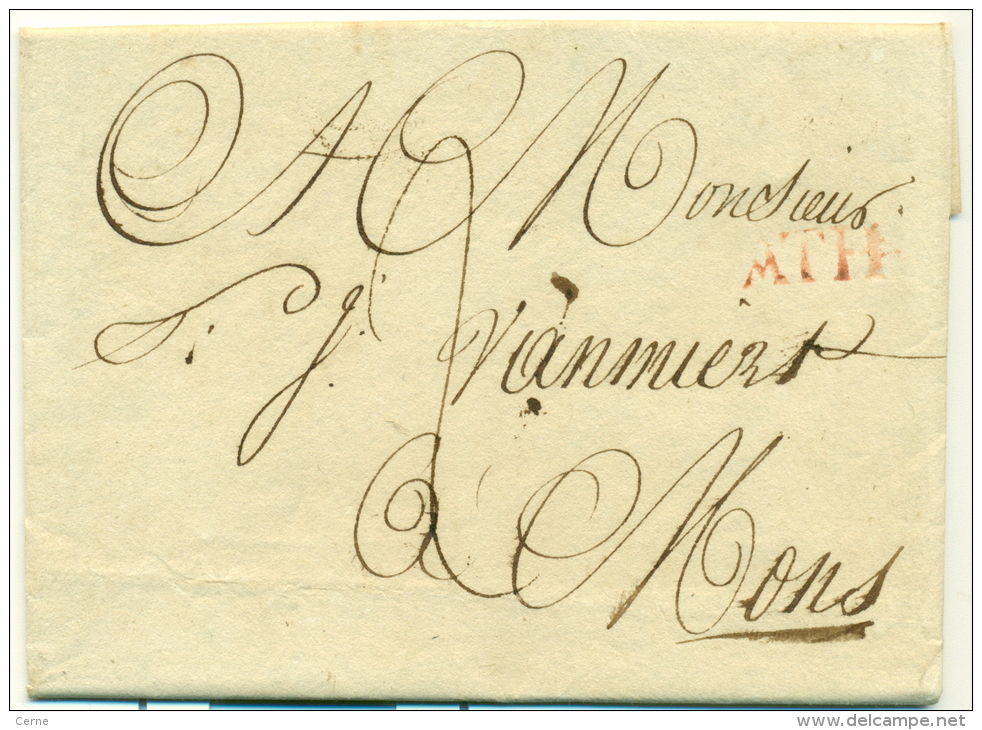 A Monsieur
ATH
S: J: Vanmiert
a Mons
Cerne
www.delcampe.net